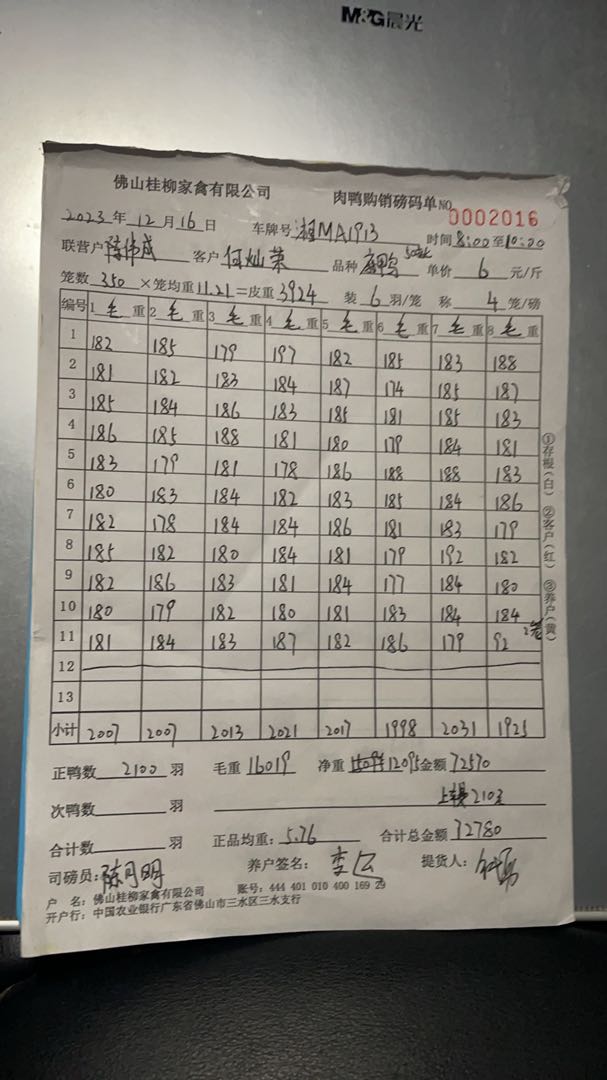 M&G晨光
佛山桂柳家禽有限公司 肉鸭购销磅码单 NO 0002016
2023年12月16日 车牌号 湘MA1913 时间8:00至10:00
联营户 陈伟成 客户 何灿荣 品种 单价 6 元/斤
笼数 350 ×笼均重 11.21 =皮重 3924 装 6 羽/笼 称 4 笼/磅
编号 1 毛 重 2 毛 重 3 毛 重 4 毛 重 5 毛 重 6 毛 重 7 毛 重 8 毛 重
1 182 185 179 197 182 185 183 188
2 181 182 183 184 187 174 185 187
3 185 184 186 183 185 181 185 183
4 186 185 188 181 180 179 184 181
5 183 179 181 178 186 188 188 183
6 180 183 184 182 183 185 184 186
7 182 178 184 184 186 181 183 179
8 185 182 180 184 181 179 192 182
9 182 186 183 181 184 177 184 180
10 180 179 182 180 181 183 184 184
11 181 184 183 187 182 186 179 92 2笼
12
13
小计 2007 2007 2013 2021 2017 1998 2031 1925
①存根(白) ②客户(红) ③养户(黄)
正鸭数 2100 羽 毛重 16019 净重 12095 金额 72570
次鸭数 羽 210元
合计数 羽 正品均重: 5.76 合计总金额 72780
司磅员: 陈月明 养户签名: 李 提货人:
户 名: 佛山桂柳家禽有限公司 账号: 444 401 010 400 169 29
开户行: 中国农业银行广东省佛山市三水区三水支行